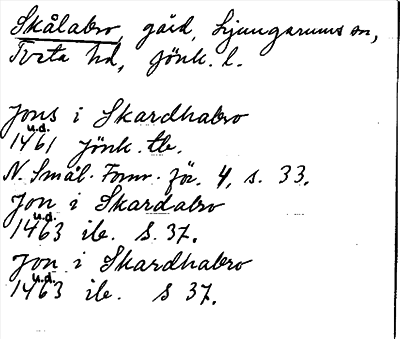 Skålabro, gård, Ljungarums sn,
Tveta hd, Jönk. l.
Jons i Skardhabro
u.d.
1461 Jönk. tb.
N. Smål. Fornr. för. 4, s. 33.
Jon i Skardabro
u.d.
1463 ib. S. 37.
Jon i Skardhabro
u.d.
1463 ib. S 37.